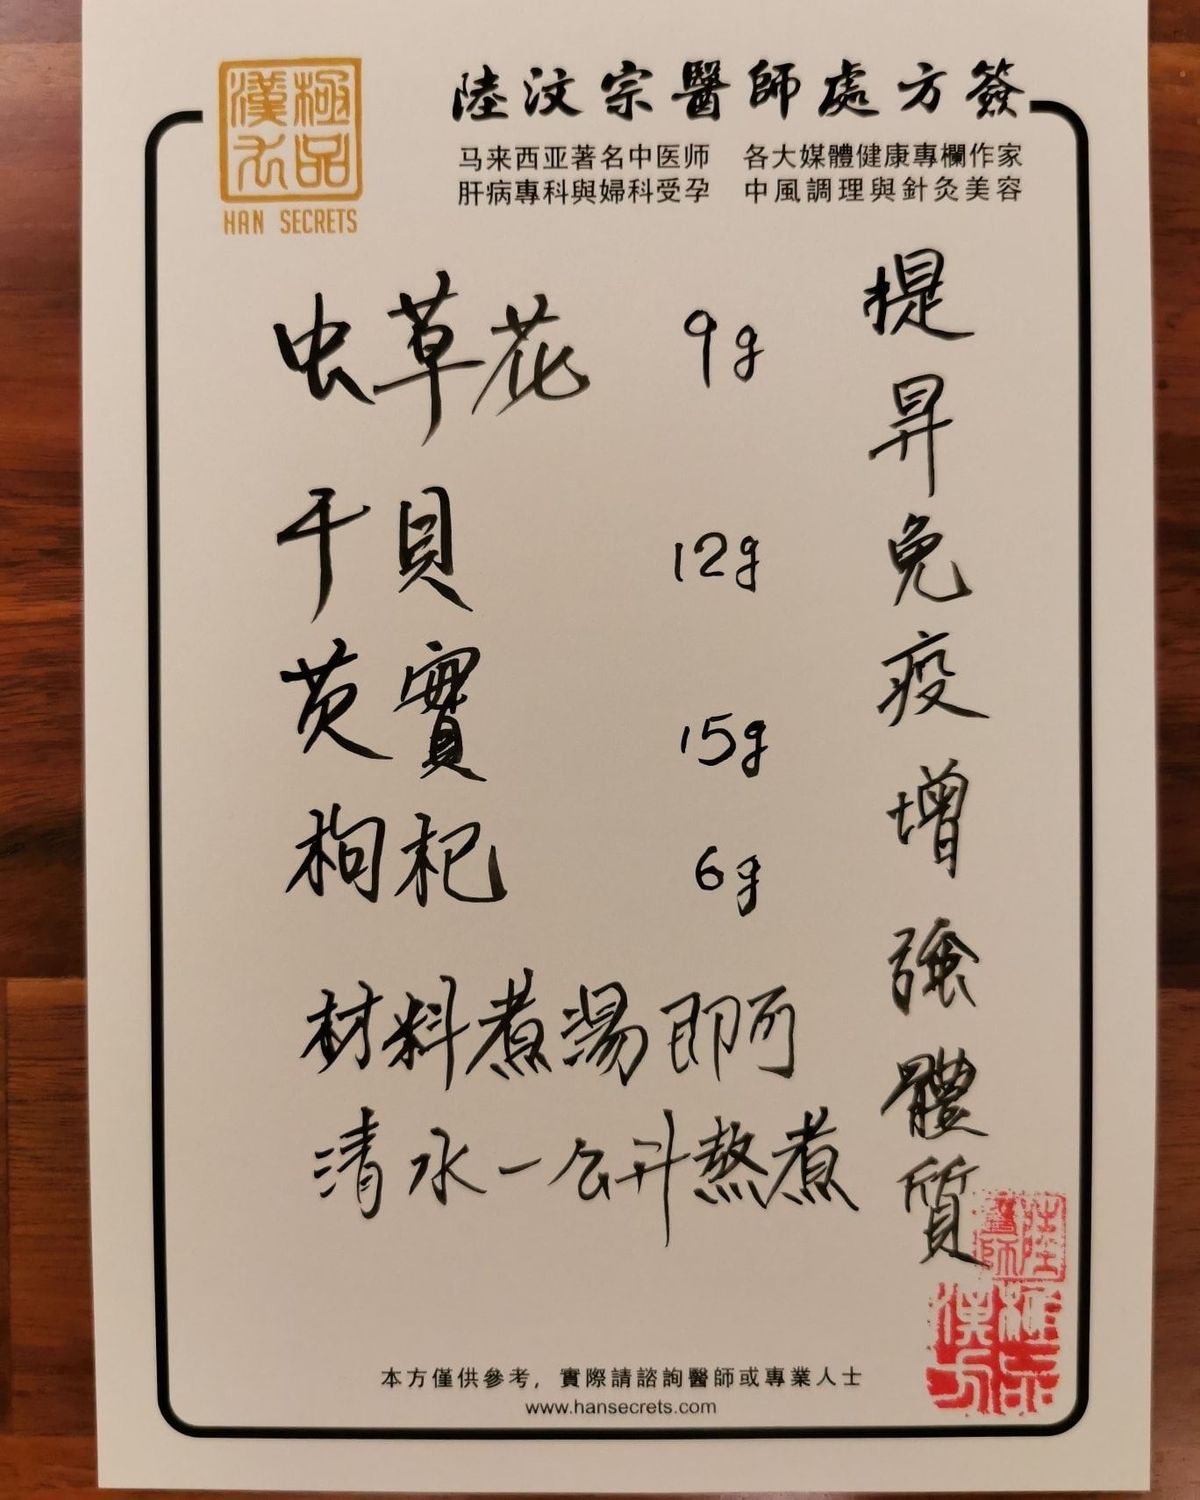 極品
漢方
HAN SECRETS
陸汶宗醫師處方簽
马来西亚著名中医师 各大媒體健康專欄作家
肝病專科與婦科受孕 中風調理與針灸美容
提昇免疫增強體質
虫草花 9g
干貝 12g
芡實 15g
枸杞 6g
材料煮湯即可
清水一公升熬煮
陸
醫師
極品
漢方
本方僅供參考，實際請諮詢醫師或專業人士
www.hansecrets.com